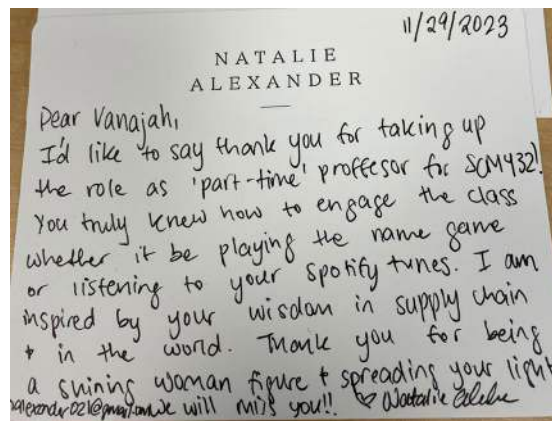 11/29/2023
NATALIE
ALEXANDER
Dear Vanajah,
I'd like to say thank you for taking up
the role as 'part-time' proffesor for SCM432!
You truly knew how to engage the class
whether it be playing the name game
or listening to your spotify tunes. I am
inspired by your wisdom in supply chain
+ in the world. Thank you for being
a shining woman figure + spreading your light
We will miss you!! ♡ Natalie